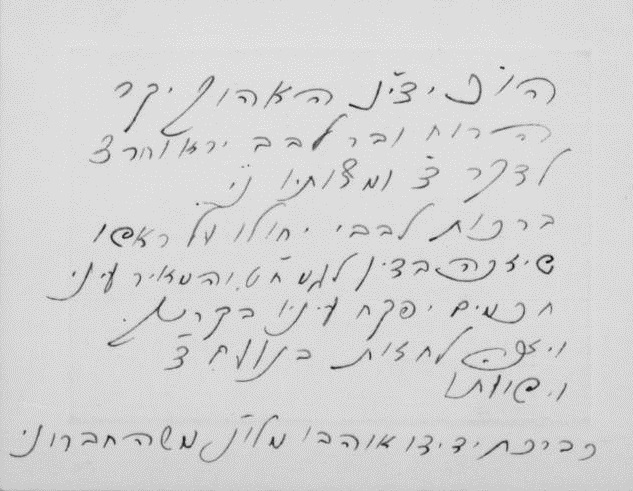 האהוב יקר
הרוח ובר לבב ירא וחרד
לדבר ה' ומצותיו ני"
ברכות לבבי יחולו על ראשו
שיזכה בדין והמאיר עיני
חכמים יפקח עיניו בקרוב
ויזכה לחזות בנועם ה'
וישועתו
כברכת ידידו אוהבו מלו"נ משה חברוני